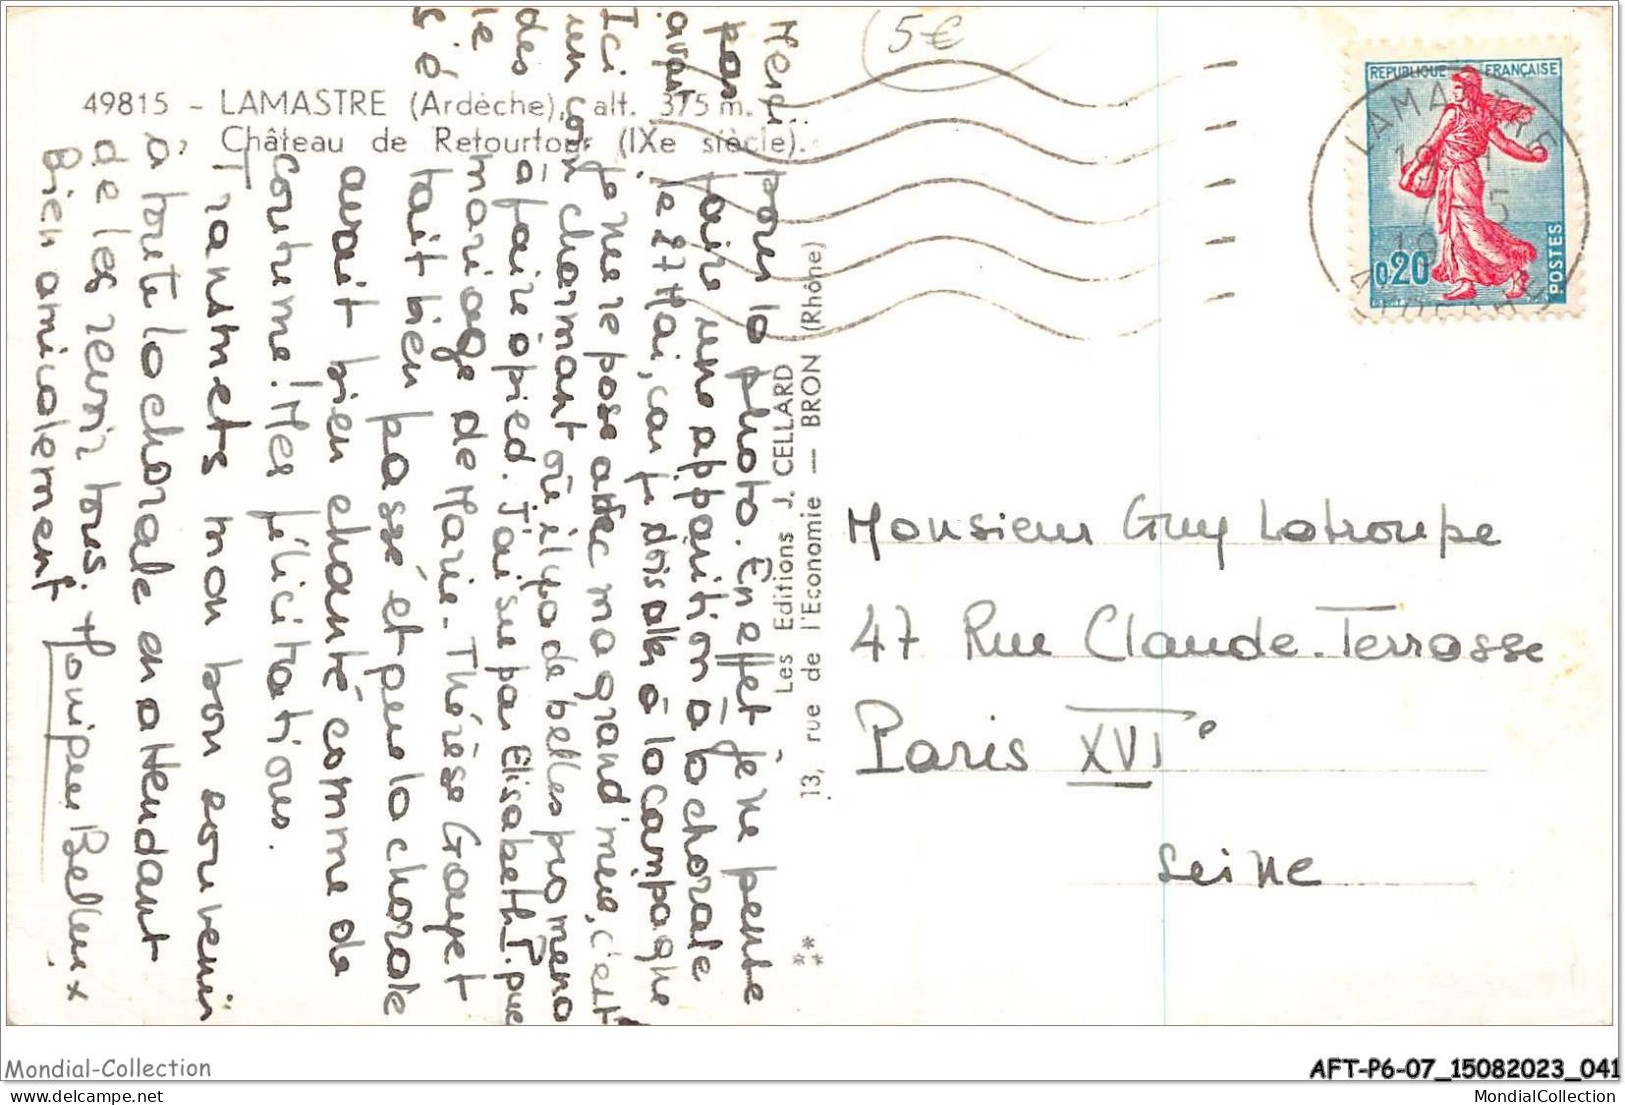 5€
49815 - LAMASTRE (Ardèche), alt. 375 m.
Château de Retourtour (IXe siècle).
REPUBLIQUE FRANÇAISE
0,20
POSTES
LAMASTRE
ARDECHE
Merci pour la photo. En effet je ne pense
pas faire une apparition à la chorale
avant le 27 Mai, car je dois aller à la campagne
Ici je me repose avec ma grand'mère, c'est
un coin charmant où il y a de belles promena
des à faire à pied. J'ai su par Elisabeth P. que
le mariage de Marie-Thérèse Gayet
s'é tait bien passé et que la chorale
avait bien chanté comme de
coutume! Mes félicitations.
Transmets mon bon souvenir
à toute la chorale en attendant
de les revoir tous.
Bien amicalement
Les Editions J. CELLARD
13, rue de l'Economie — BRON (Rhône)
**
Monsieur Guy Latroupe
47 Rue Claude-Terrasse
Paris XVIe
Seine
Mondial-Collection
AFT-P6-07_15082023_041
www.delcampe.net
MondialCollection